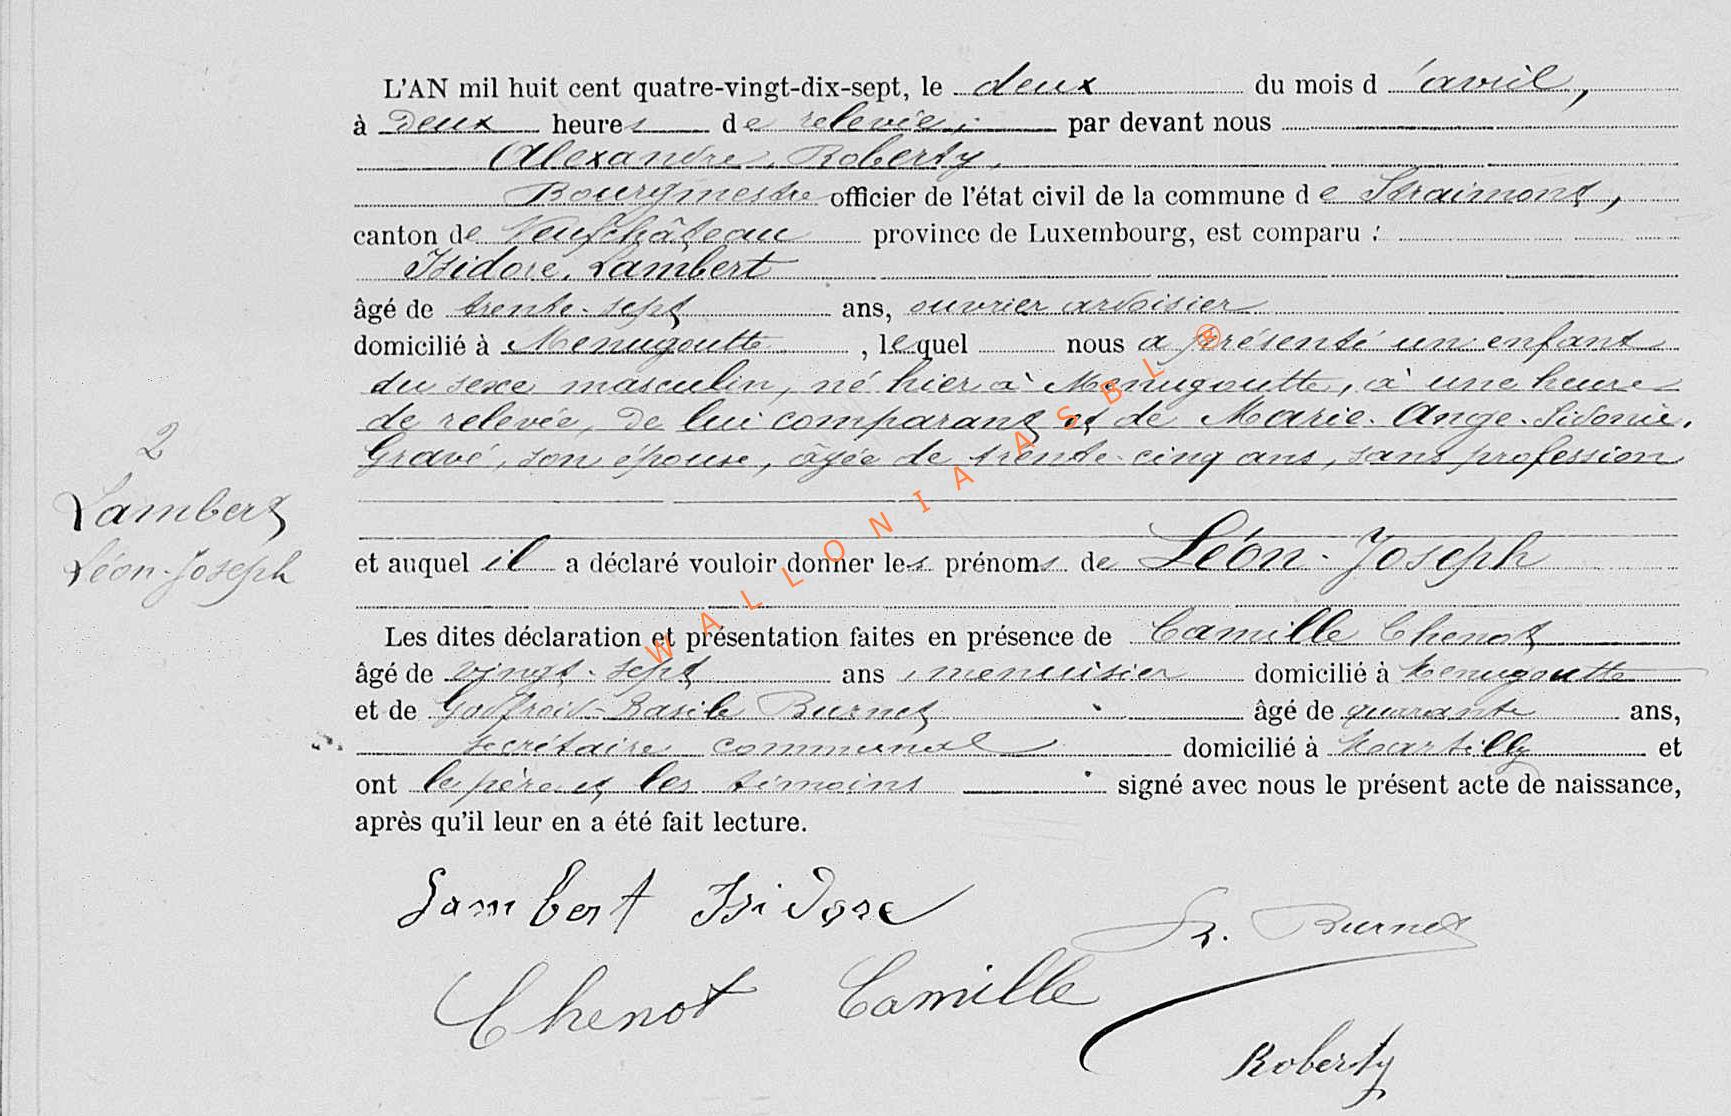 L'AN mil huit cent quatre-vingt-dix-sept, le deux du mois d'avril,
à deux heures de relevée, par devant nous
Alexandre Roberty,
Bourgmestre officier de l'état civil de la commune de Straimont,
canton de Neufchâteau province de Luxembourg, est comparu :
Isidore Lambert
âgé de trente-sept ans, ouvrier ardoisier
domicilié à Menugoutte, lequel nous a présenté un enfant
du sexe masculin, né hier à Menugoutte, à une heure
de relevée, de lui comparant et de Marie-Ange-Sidonie
Gravé, son épouse, âgée de trente-cinq ans, sans profession
2
Lambert
Léon-Joseph
et auquel il a déclaré vouloir donner les prénoms de Léon-Joseph
Les dites déclaration et présentation faites en présence de Camille Chenot
âgé de vingt-sept ans, menuisier domicilié à Menugoutte
et de Godfroid-Basile Burnet âgé de quarante ans,
secrétaire communal domicilié à Martilly et
ont le père et les témoins signé avec nous le présent acte de naissance,
après qu'il leur en a été fait lecture.
Lambert Isidore
B. Burnet
Chenot Camille
Roberty
WALLONIA ASBL ®